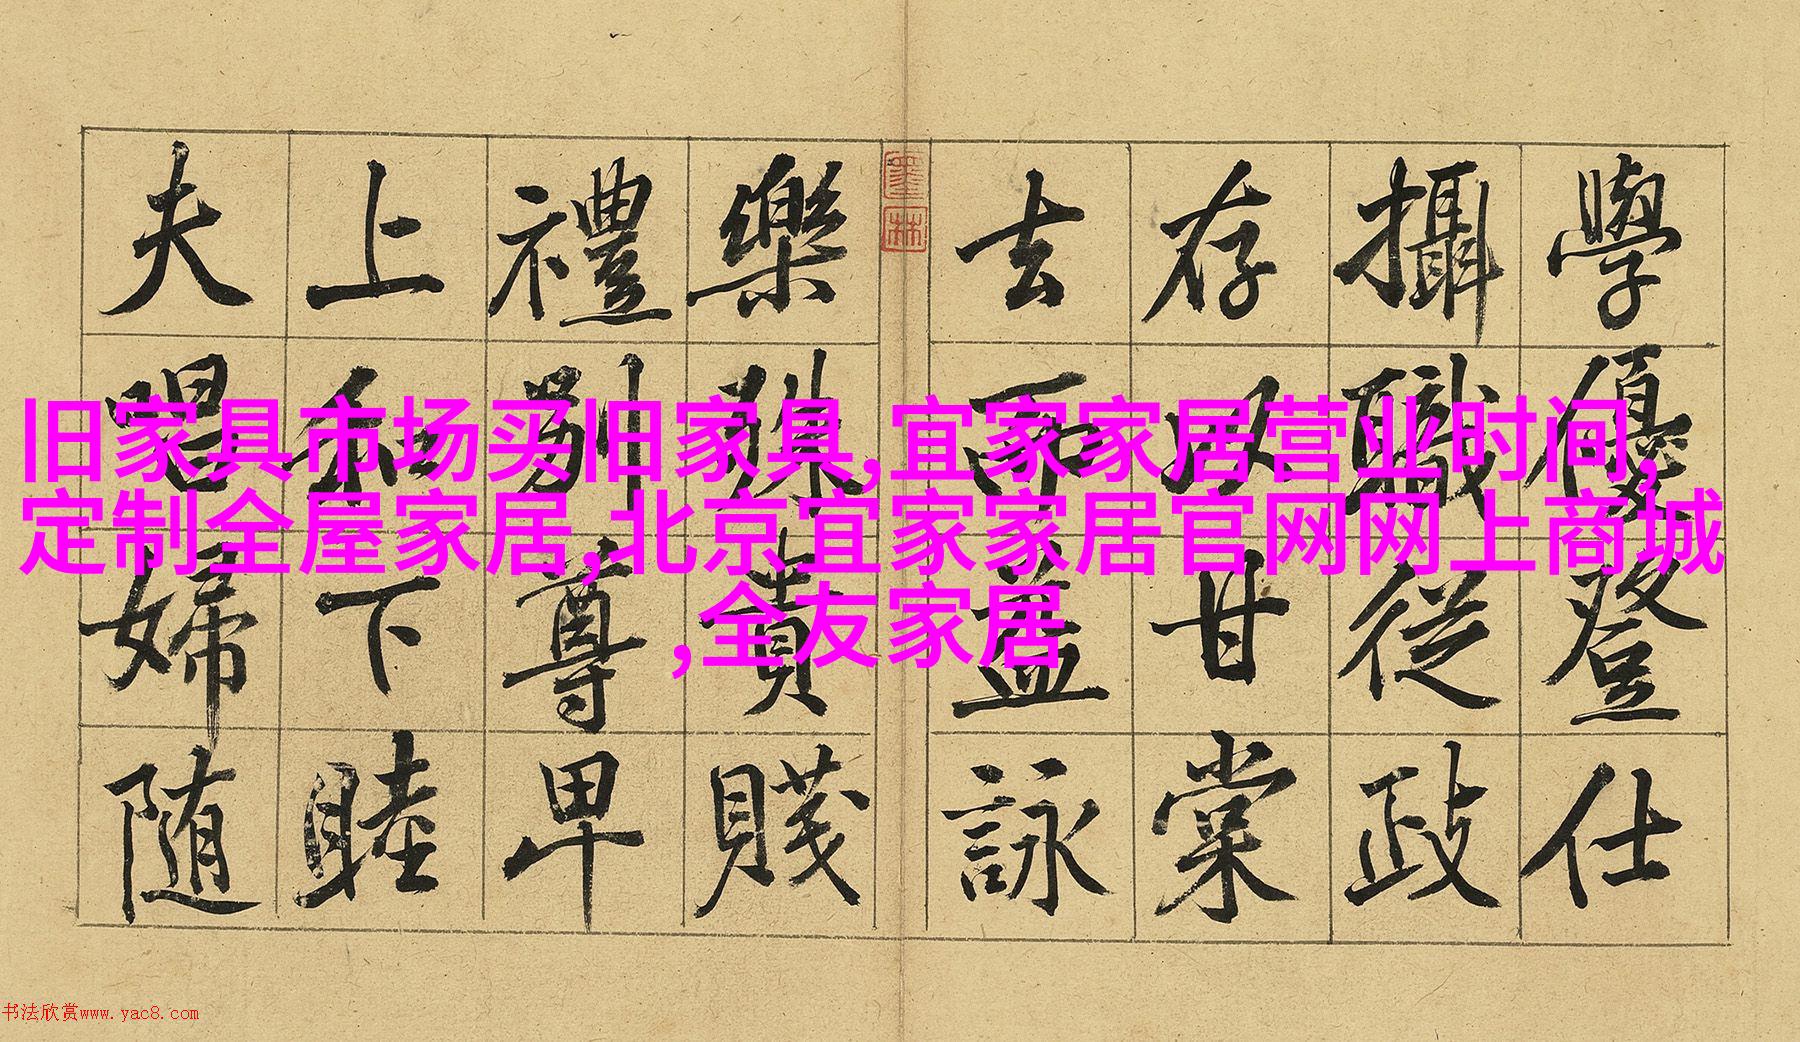 旧家具市场买旧家具,宜家家居营业时间,
定制全屋家居,北京宜家家居官网网上商城
,全友家居
學優登仕
攝職從政
存以甘棠
去而益詠
樂殊貴賤
禮別尊卑
上和下睦
夫唱婦随
墨林
书法欣赏www.yac8.com